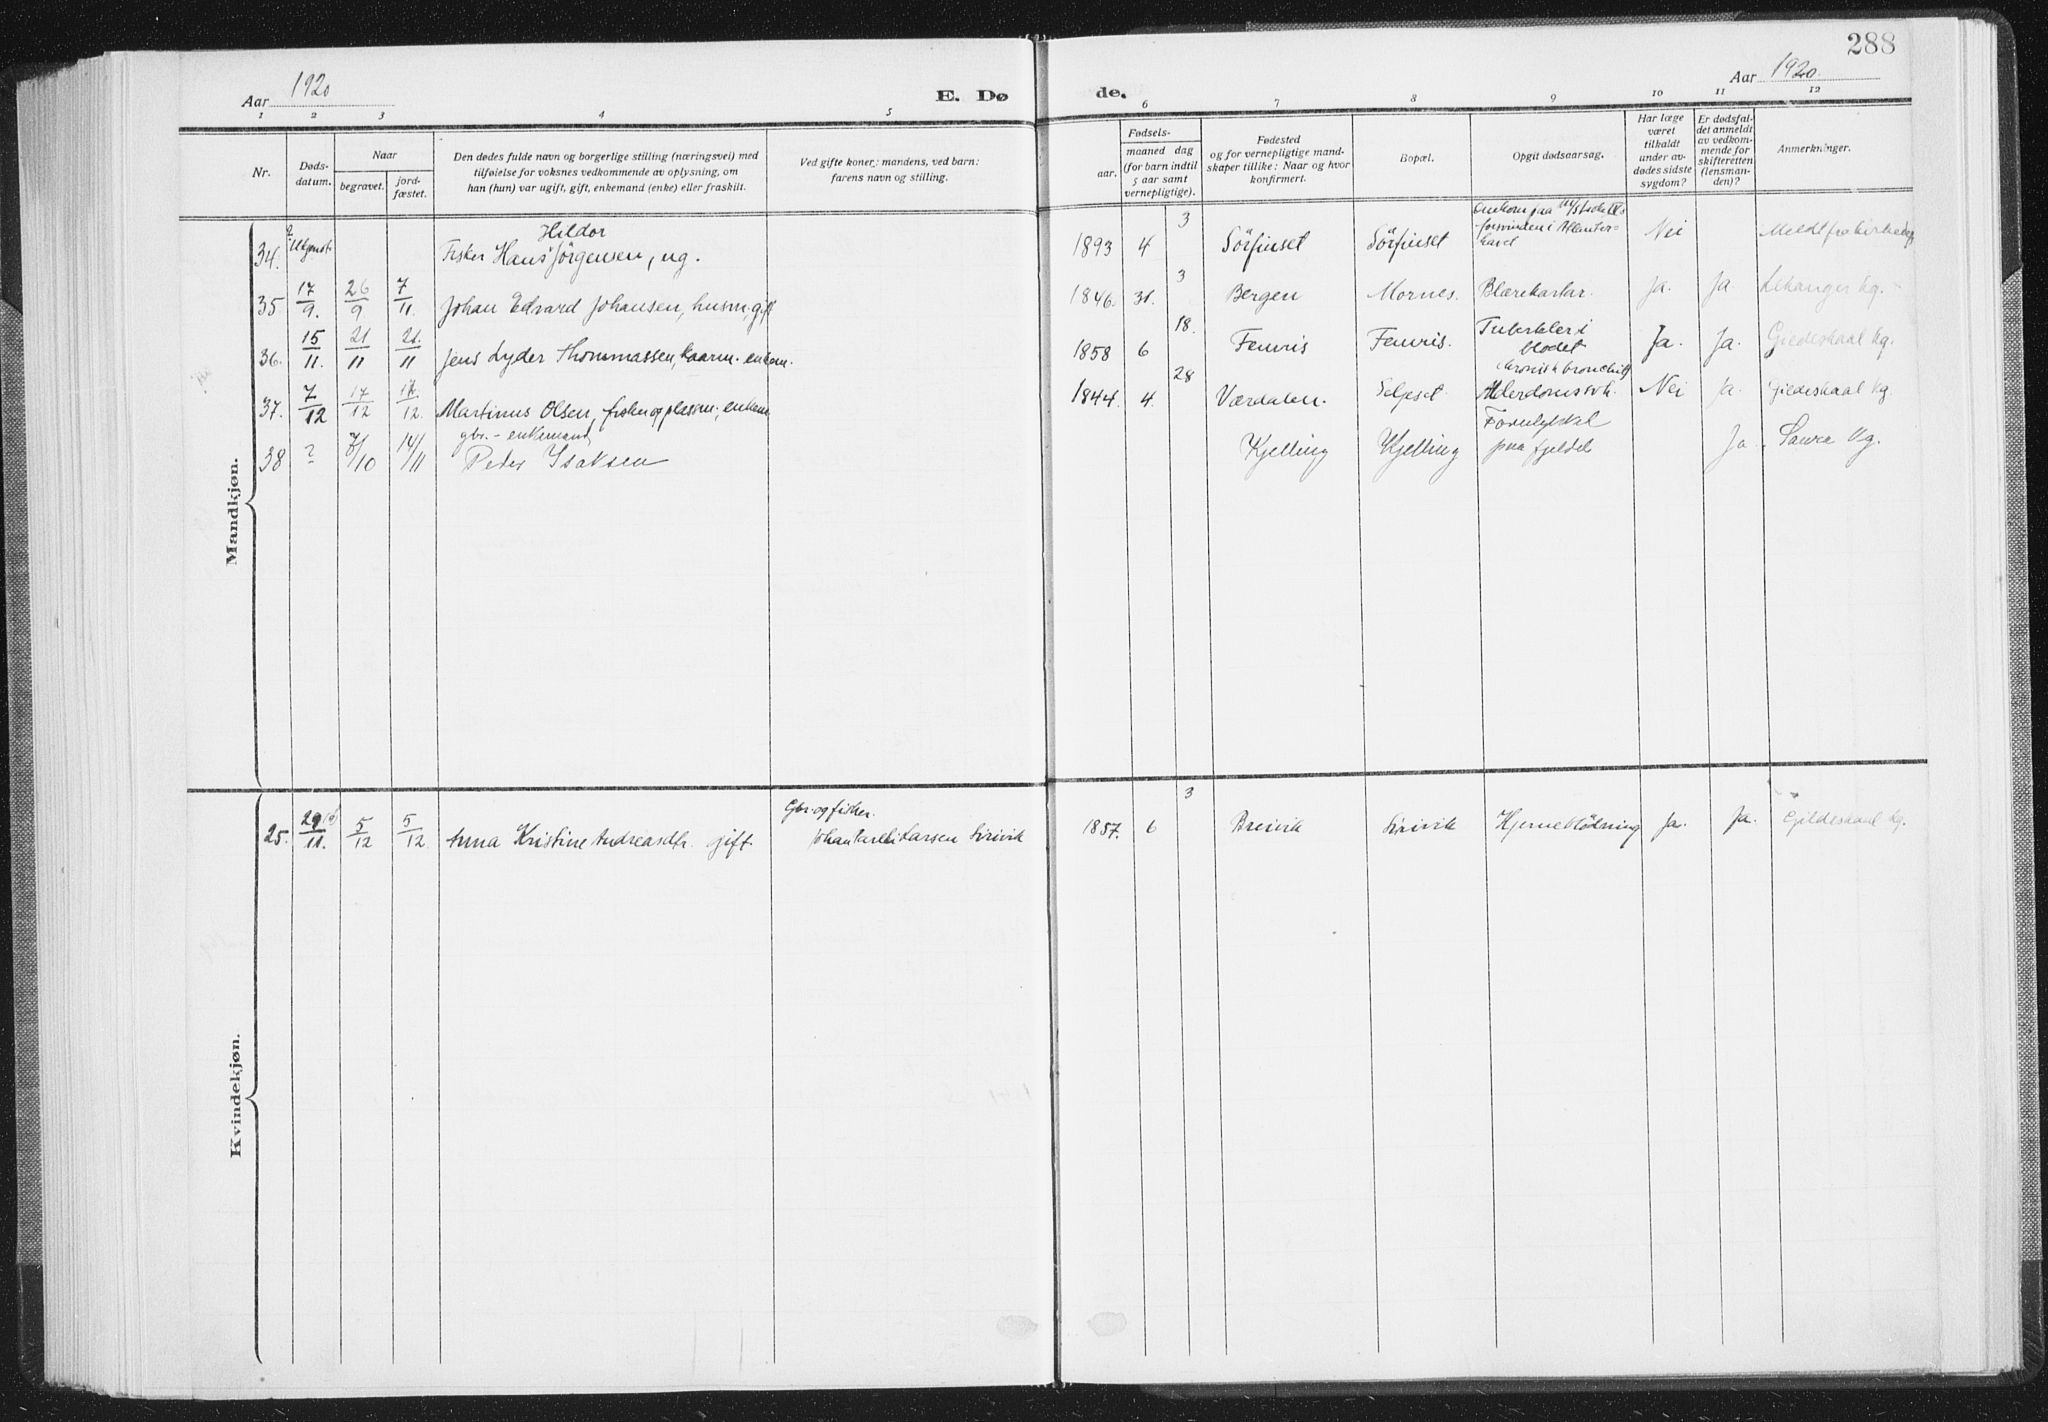 288
Aar 1920
E. Dø
de.
Aar 1920.
1 2 3 4 5 6 7 8 9 10 11 12
Nr.
Døds-
datum.
Naar
begravet.
jord-
fæstet.
Den dødes fulde navn og borgerlige stilling (næringsvei) med
tilføielse for voksnes vedkommende av oplysning, om
han (hun) var ugift, gift, enkemand (enke) eller fraskilt.
Ved gifte koner: mandens, ved barn:
farens navn og stilling.
Fødsels-
aar.
maaned dag
(for barn indtil
5 aar samt
vernepligtige).
Fødested
og for vernepligtige mand-
skaper tillike: Naar og hvor
konfirmert.
Bopæl.
Opgit dødsaarsag.
Har læge
været
tilkaldt
under av-
dødes sidste
sygdom?
Er dødsfal-
det anmeldt
av vedkom-
mende for
skifteretten
(lensman-
den)?
Anmerkninger.
Mandkjøn.
34. ? Hildor
Fisker Hans Jörgensen, ug. 1893 4 3 Sörfinset Sörfinset Omkom paa
forsvinden i Atlanter-
havet Nei
35 17/9. 26/9 7/11 Johan Edvard Johansen, husm, gift 1846. 31. 3 Bergen Mornes. Blærekatar. Ja. Ja Kg.
36. 15/11. 21/11 21./11 Jens Lyder Thommassen, kaarm. enkem. 1858 6 18. Fenvis Fenvis. Tuberkler i
blodet Ja. Ja. Gildeskaal Kg.
37. 7/12 17/12 17/12. Martinus Olsen, fisker og plassm; enkem 1844. 4. 28 Værdalen. Selpset (kronisk bronchit)
Alderdomssvk. Nei Ja. Gildeskaal Kg.
38 ? 7/10 14/11 gbr. - enkemand
Peder Isaksen Kjelling Kjelling Forulykket
paa fjeldet Ja. Saura Kg.
Kvindekjøn.
25. 29/11. 5/12 5/12 Anna Kristine Andreasdtr. gift. Gbr. og fisker.
Larsen Sirivik 1857. 6 3 Breivik Sirivik Hjerneblödning Ja. Ja. Gildeskaal Kg.